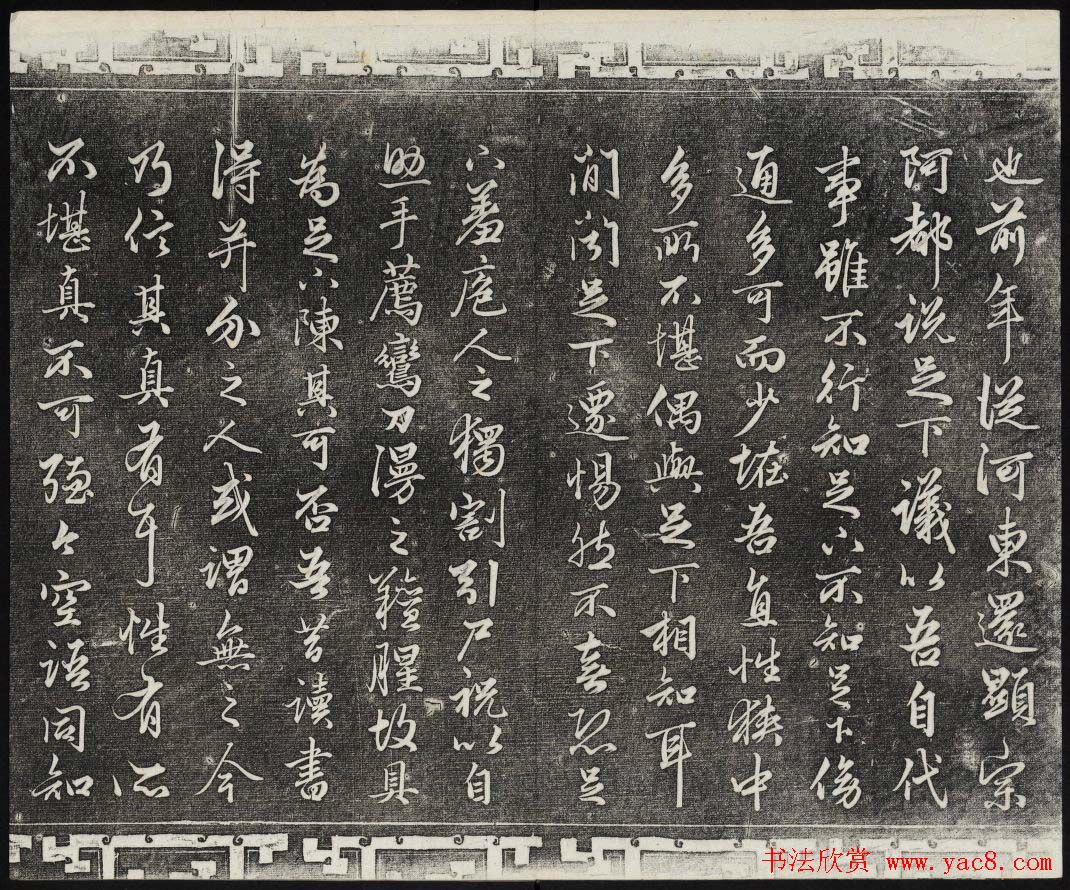 也前年從河東還顯宗
阿都說足下議以吾自代
事雖不行知足下不知足下傍
通多可而少怪吾直性狹中
多所不堪偶與足下相知耳
間聞足下遷惕然不喜恐足
下羞庖人之獨割引尸祝以自
助手薦鸞刀漫之羶腥故具
為足下陳其可否吾昔讀書
得并介之人或謂無之今
乃信其真有耳性有所
不堪真不可強今空語同知
书法欣赏 www.yac8.com